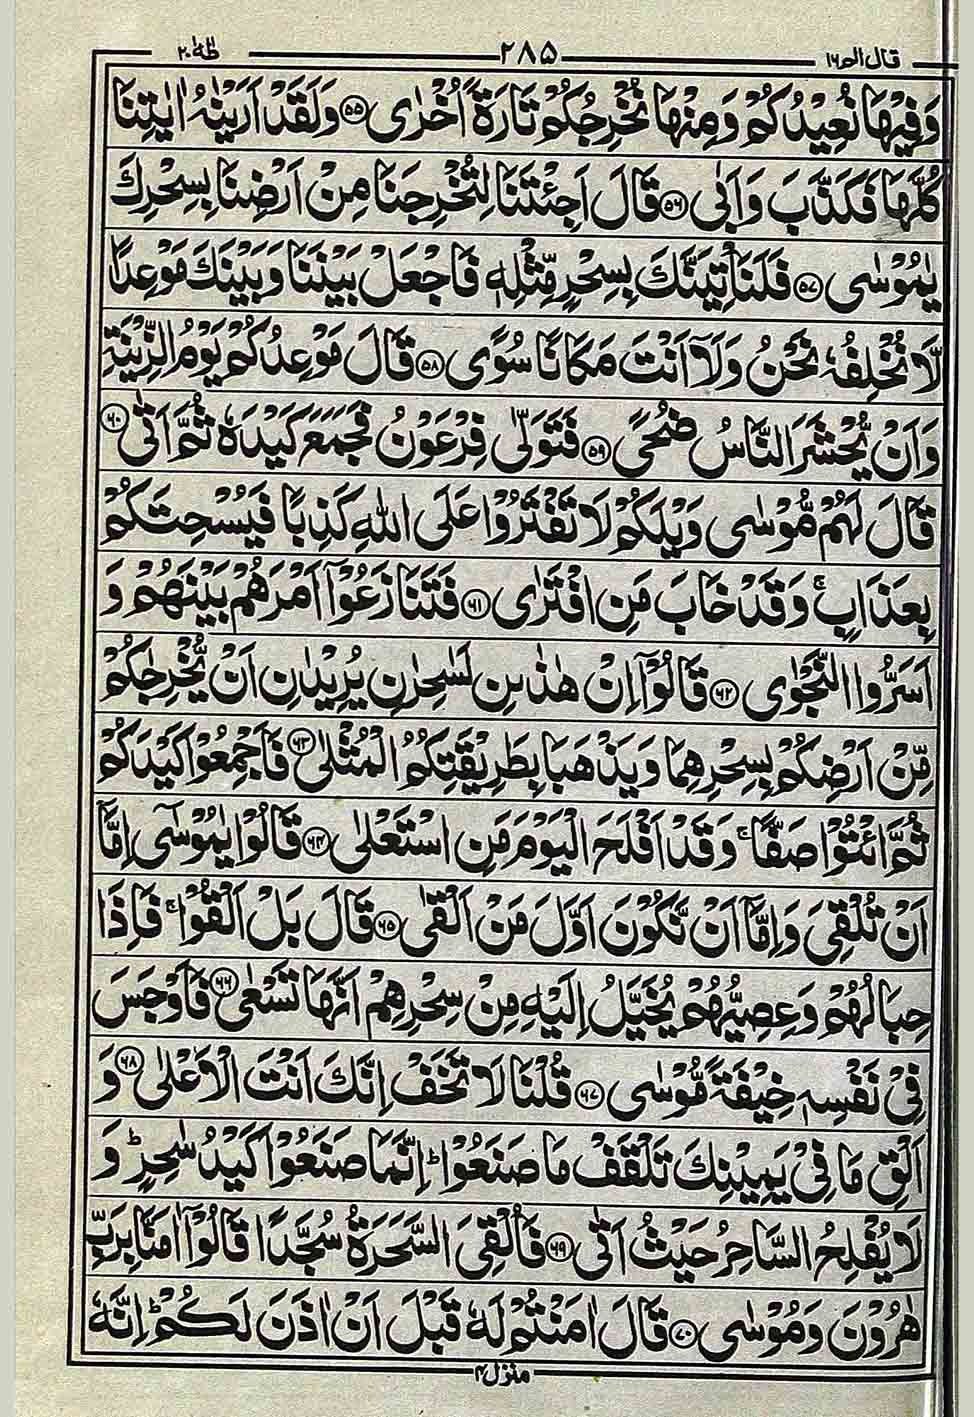 قال الم ١٦ ٢٨٥ طٰهٰ ٢٠
وَفِيْهَا نُعِيْدُكُمْ وَمِنْهَا نُخْرِجُكُمْ تَارَةً اُخْرٰى ۝٥٥ وَلَقَدْ اَرَيْنٰهُ اٰيٰتِنَا
كُلَّهَا فَكَذَّبَ وَاَبٰى ۝٥٦ قَالَ اَجِئْتَنَا لِتُخْرِجَنَا مِنْ اَرْضِنَا بِسِحْرِكَ
يٰمُوْسٰى ۝٥٧ فَلَنَاْتِيَنَّكَ بِسِحْرٍ مِّثْلِهٖ فَاجْعَلْ بَيْنَنَا وَبَيْنَكَ مَوْعِدًا
لَّا نُخْلِفُهٗ نَحْنُ وَلَاۤ اَنْتَ مَكَانًا سُوًى ۝٥٨ قَالَ مَوْعِدُكُمْ يَوْمُ الزِّيْنَةِ
وَاَنْ يُّحْشَرَ النَّاسُ ضُحًى ۝٥٩ فَتَوَلّٰى فِرْعَوْنُ فَجَمَعَ كَيْدَهٗ ثُمَّ اَتٰى ۝٦٠
قَالَ لَهُمْ مُّوْسٰى وَيْلَكُمْ لَا تَفْتَرُوْا عَلَى اللّٰهِ كَذِبًا فَيُسْحِتَكُمْ
بِعَذَابٍ ۚ وَقَدْ خَابَ مَنِ افْتَرٰى ۝٦١ فَتَنَازَعُوْۤا اَمْرَهُمْ بَيْنَهُمْ وَ
اَسَرُّوا النَّجْوٰى ۝٦٢ قَالُوْۤا اِنْ هٰذٰىنِ لَسٰحِرٰنِ يُرِيْدٰنِ اَنْ يُّخْرِجٰكُمْ
مِّنْ اَرْضِكُمْ بِسِحْرِهِمَا وَيَذْهَبَا بِطَرِيْقَتِكُمُ الْمُثْلٰى ۝٦٣ فَاَجْمِعُوْا كَيْدَكُمْ
ثُمَّ ائْتُوْا صَفًّا ۚ وَقَدْ اَفْلَحَ الْيَوْمَ مَنِ اسْتَعْلٰى ۝٦٤ قَالُوْا يٰمُوْسٰۤى اِمَّاۤ
اَنْ تُلْقِىَ وَاِمَّاۤ اَنْ نَّكُوْنَ اَوَّلَ مَنْ اَلْقٰى ۝٦٥ قَالَ بَلْ اَلْقُوْا ۚ فَاِذَا
حِبَالُهُمْ وَعِصِيُّهُمْ يُخَيَّلُ اِلَيْهِ مِنْ سِحْرِهِمْ اَنَّهَا تَسْعٰى ۝٦٦ فَاَوْجَسَ
فِىْ نَفْسِهٖ خِيْفَةً مُّوْسٰى ۝٦٧ قُلْنَا لَا تَخَفْ اِنَّكَ اَنْتَ الْاَعْلٰى ۝٦٨ وَ
اَلْقِ مَا فِىْ يَمِيْنِكَ تَلْقَفْ مَا صَنَعُوْا ؕ اِنَّمَا صَنَعُوْا كَيْدُ سٰحِرٍ ؕ وَ
لَا يُفْلِحُ السَّاحِرُ حَيْثُ اَتٰى ۝٦٩ فَاُلْقِىَ السَّحَرَةُ سُجَّدًا قَالُوْۤا اٰمَنَّا بِرَبِّ
هٰرُوْنَ وَمُوْسٰى ۝٧٠ قَالَ اٰمَنْتُمْ لَهٗ قَبْلَ اَنْ اٰذَنَ لَكُمْ ؕ اِنَّهٗ
منزل ٤